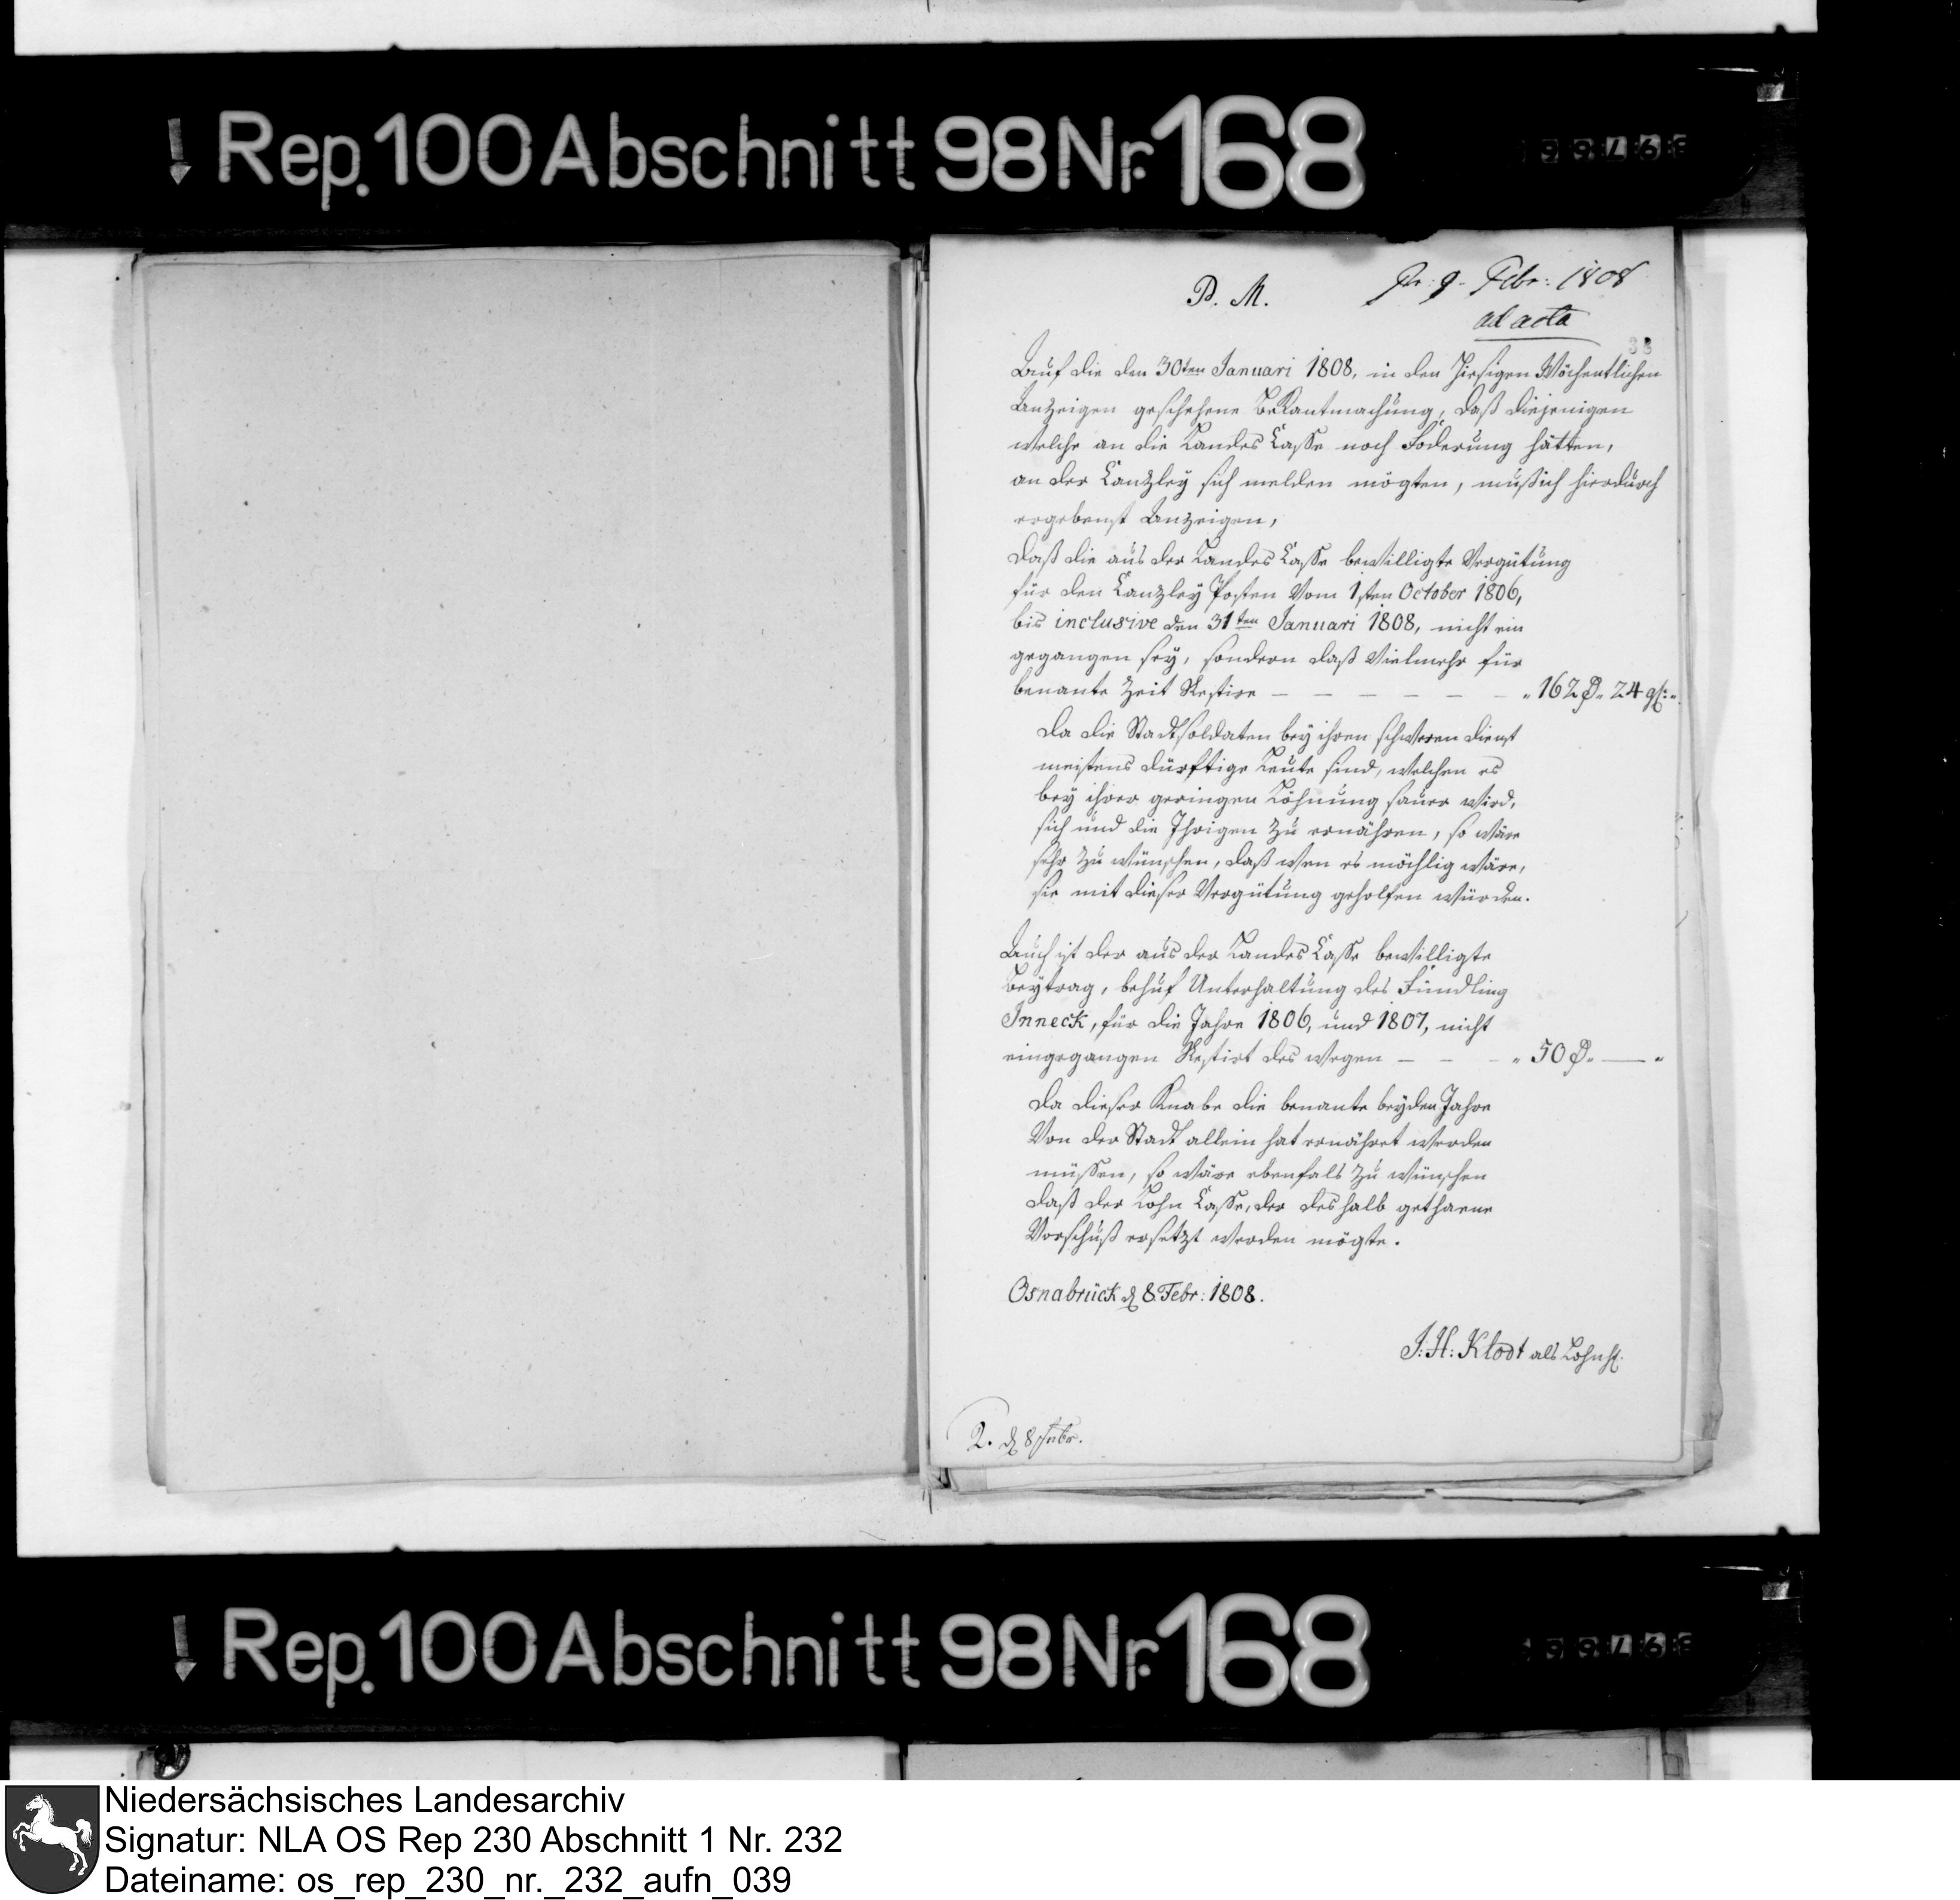 Rep. 100 Abschnitt 98 Nr. 168
P. M.
pr. 9. Febr: 1808
ad acta
38
Auf die den 30ten Januari 1808, in den Hiesigen Wöchentlichen
Anzeigen geschehene BeKantmachung, daß diejenigen
welche an die Landes Casse noch Foderung hätten,
an der Canzley sich melden mögten, muß ich hierdurch
ergebenst Anzeigen,
daß die aus der Landes Casse bewilligte Vergütung
für den Canzley Posten Vom 1sten October 1806,
bis inclusive den 31ten Januari 1808, nicht ein
gegangen sey, sondern daß Vielmehr für
benante Zeit Restire — — — — — „ 162 „ 24
Da die Stadtsoldaten bey ihren schweren Dienst
meistens dürftige Leute sind, welchen es
bey ihrer geringen Löhnung sauer wird,
sich und die Ihrigen zu ernähren, so wäre
sehr zu wünschen, daß wen es möchlig wäre,
sie mit dieser Vergütung geholfen würden.
Auch ist der aus der Landes Casse bewilligte
Beytrag, behuf Unterhaltung des Fündling
Inneck, für die Jahre 1806, und 1807, nicht
eingegangen Restirt des wegen — — — „ 50 „ — „
Da dieser Knabe die benante beyden Jahre
Von der Stadt allein hat ernährt werden
müssen, so wäre ebenfals zu wünschen
daß der Lohn Casse, der deshalb gethaene
Vorschuß ersetzt werden mögte.
Osnabrück d 8 Febr: 1808.
J: H: Klodt als Lohnh.
2. d 8 Febr.
Rep. 100 Abschnitt 98 Nr. 168
Niedersächsisches Landesarchiv
Signatur: NLA OS Rep 230 Abschnitt 1 Nr. 232
Dateiname: os_rep_230_nr._232_aufn_039